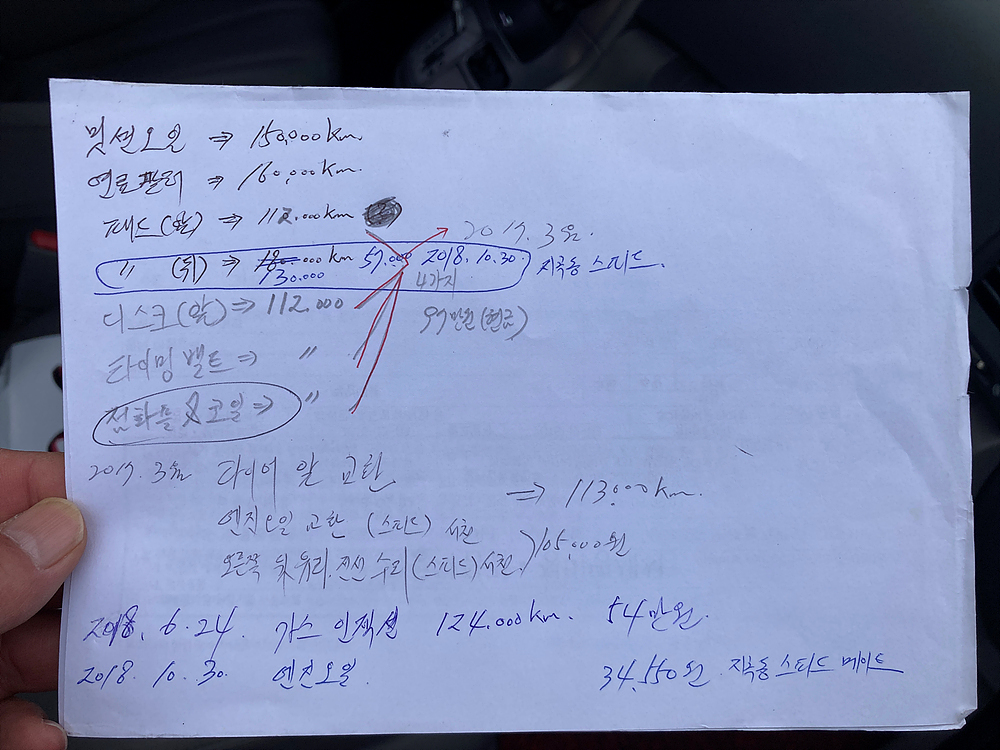 밋션오일 ⇒ 150,000km.
연료필터 ⇒ 160,000km.
패드(앞) ⇒ 112.000km
2017. 3월.
〃 (뒤) ⇒ 180.000km 57.000 2018. 10. 30. 지곡동 스피드.
130.000 4가지
디스크(앞) ⇒ 112.000
97만원(현금)
타이밍 벨트 ⇒ 〃
점화플 & 코일 ⇒ 〃
2017. 3월 타이어 앞 교환
⇒ 113,000km.
엔진오일 교환 (스피드) 서천
오른쪽 뒷유리.전선 수리(스피드)서천. 105,000원
2018. 6. 24. 가스 인젝션 124.000km. 54만원.
2018. 10. 30. 엔진오일. 34,550원. 지곡동 스피드 메이트